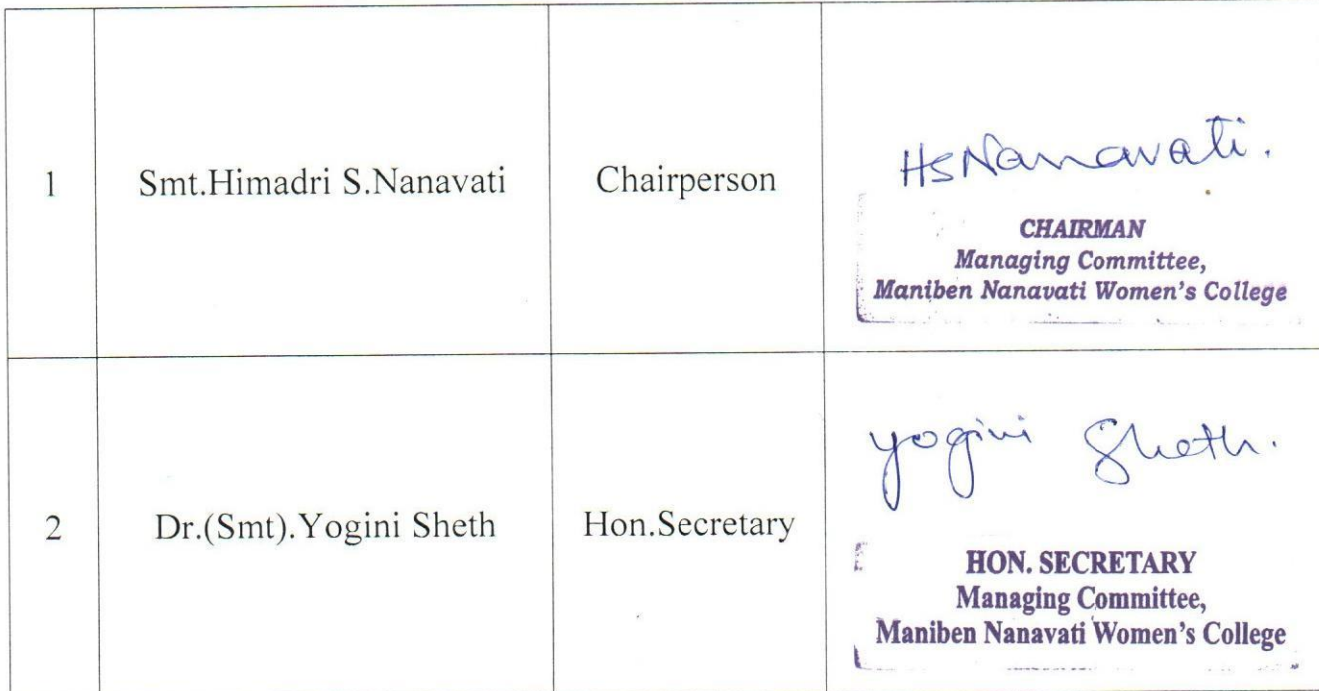 1 Smt.Himadri S.Nanavati Chairperson
HSNanavati.
CHAIRMAN
Managing Committee,
Maniben Nanavati Women's College
2 Dr.(Smt).Yogini Sheth Hon.Secretary
yogini Sheth.
HON. SECRETARY
Managing Committee,
Maniben Nanavati Women's College